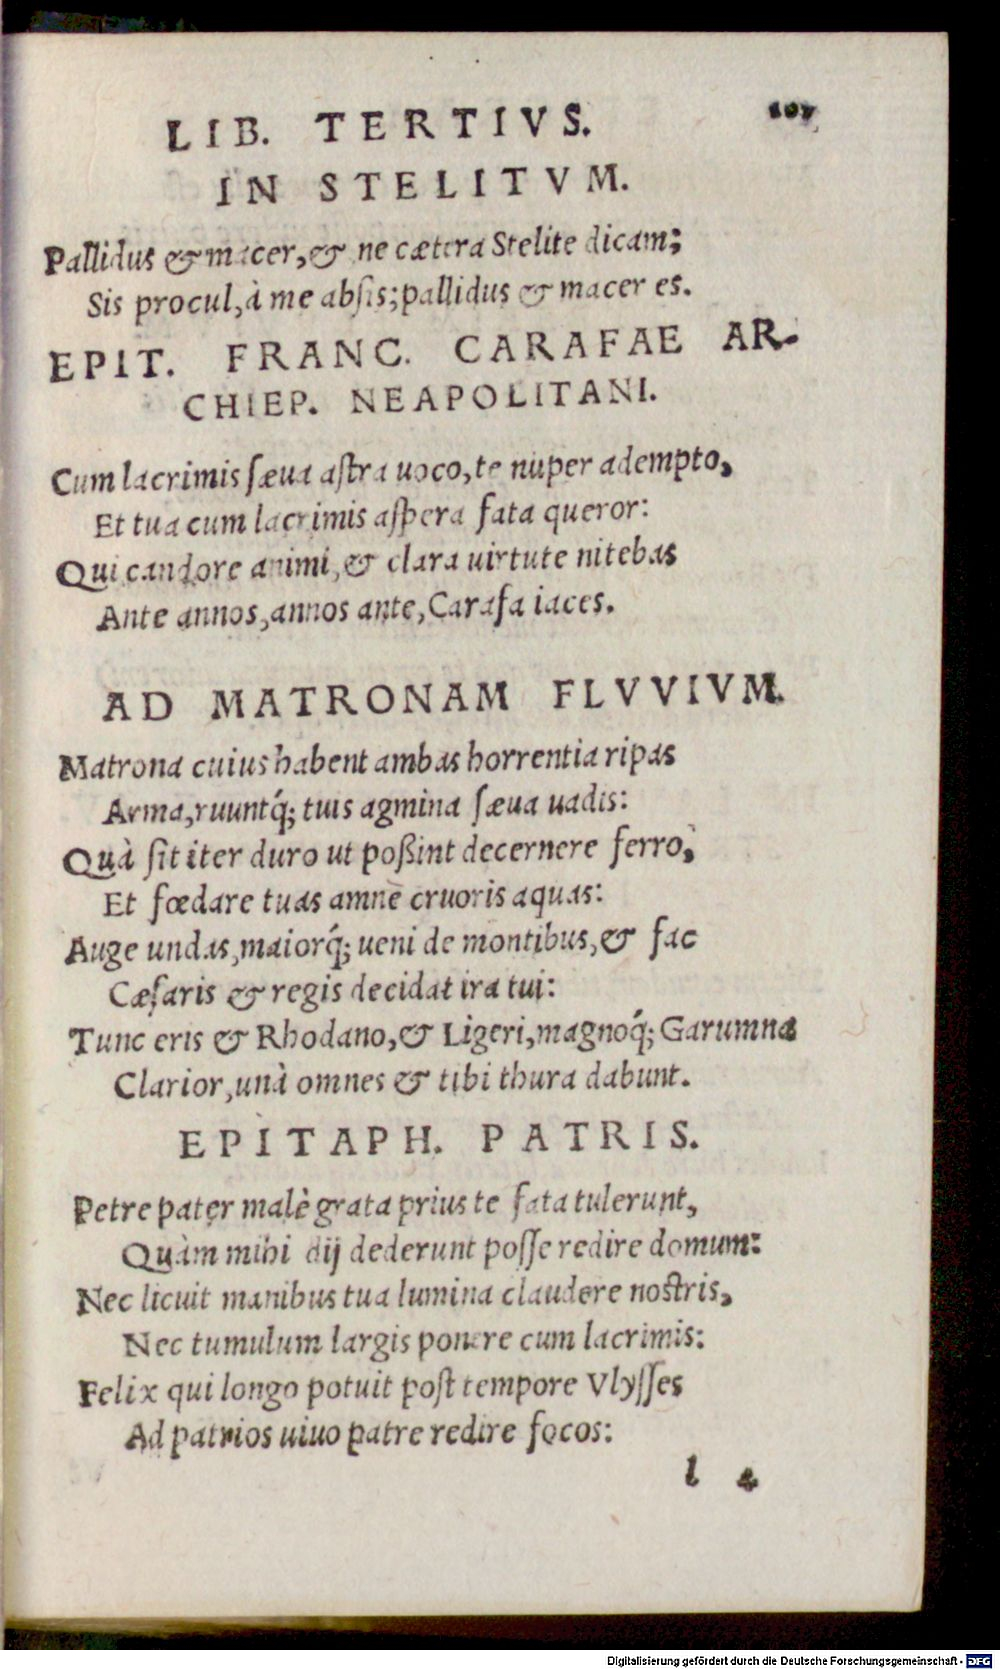 LIB. TERTIVS. 107
IN STELITVM.
Pallidus & macer, & ne cætera Stelite dicam;
Sis procul, à me absis; pallidus & macer es.
EPIT. FRANC. CARAFAE AR-
CHIEP. NEAPOLITANI.
Cum lacrimis sæua astra uoco, te nuper adempto,
Et tua cum lacrimis aspera fata queror:
Qui candore animi, & clara uirtute nitebas
Ante annos, annos ante, Carafa iaces.
AD MATRONAM FLVVIVM.
Matrona cuius habent ambas horrentia ripas
Arma, ruuntq́; tuis agmina sæua uadis:
Quà sit iter duro ut poßint decernere ferro,
Et fœdare tuas amne cruoris aquas:
Auge undas, maiorq́; ueni de montibus, & fac
Cæsaris & regis decidat ira tui:
Tunc eris & Rhodano, & Ligeri, magnoq́; Garumna
Clarior, unà omnes & tibi thura dabunt.
EPITAPH. PATRIS.
Petre pater malè grata prius te fata tulerunt,
Quàm mihi dij dederunt posse redire domum:
Nec licuit manibus tua lumina claudere nostris,
Nec tumulum largis ponere cum lacrimis:
Felix qui longo potuit post tempore Vlysses
Ad patrios uiuo patre redire focos:
l 4
Digitalisierung gefördert durch die Deutsche Forschungsgemeinschaft - DFG